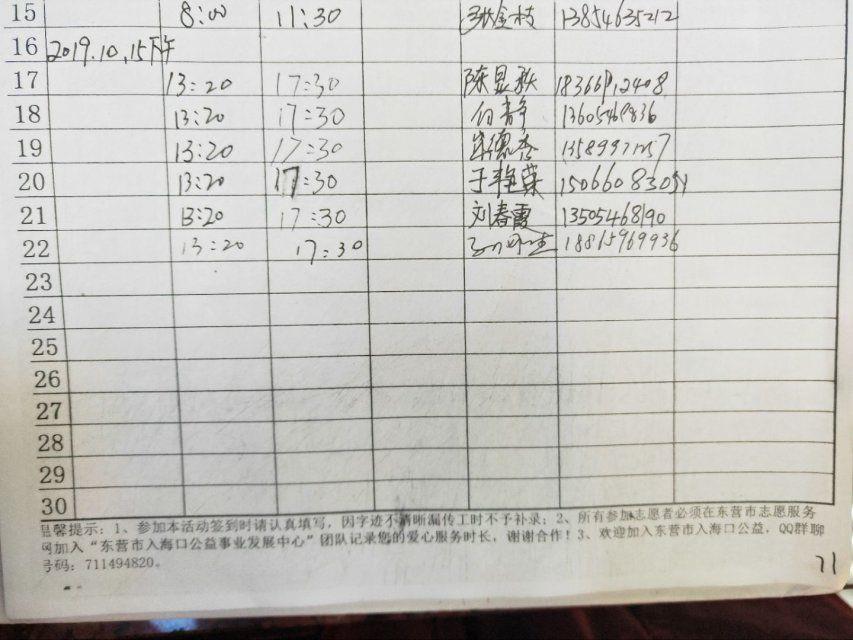 15 8:00 11:30 张金枝 13854635212
16 2019.10.15下午
17 13:20 17:30 陈显秋
18 13:20 17:30 付静 13605469836
19 13:20 17:30
20 13:20 17:30 于艳荣
21 13:20 17:30 刘春霞 13505468190
22 13:20 17:30 18815969936
23
24
25
26
27
28
29
30
温馨提示：1、参加本活动签到时请认真填写，因字迹不清晰漏传工时不予补录；2、所有参加志愿者必须在东营市志愿服务
网加入“东营市入海口公益事业发展中心”团队记录您的爱心服务时长，谢谢合作！3、欢迎加入东营市入海口公益，QQ群聊
号码：711494820。
71